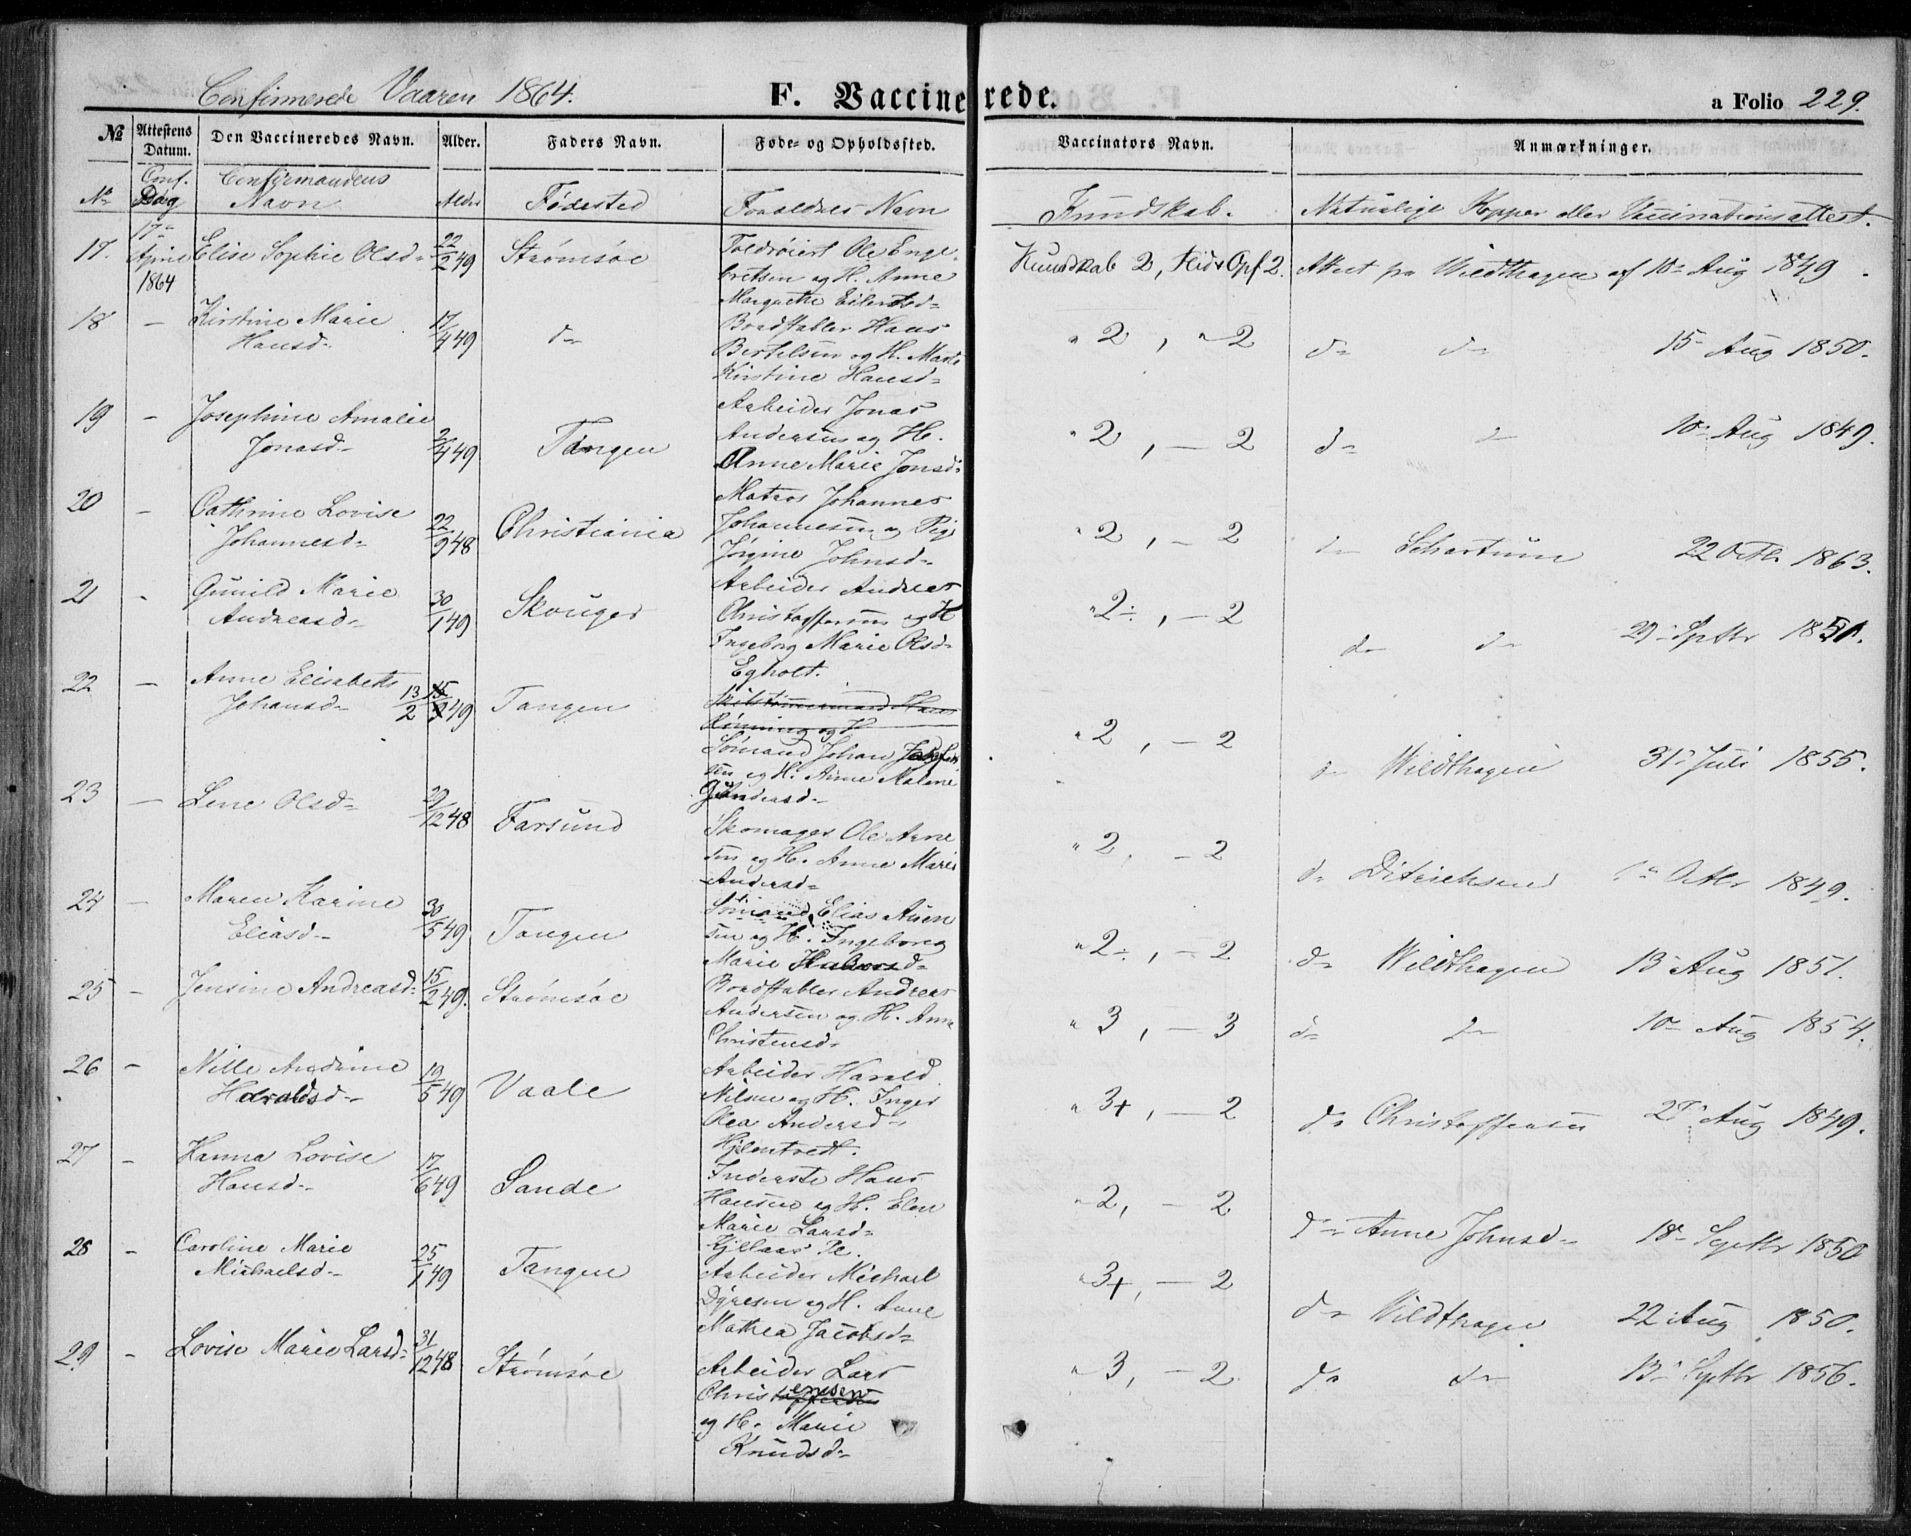 Confirmerede Vaaren 1864. F. Vaccinerede. a Folio 229.
№ Attestens Datum. Den Vaccineredes Navn. Alder. Faders Navn. Føde- og Opholdssted. Vaccinators Navn. Anmærkninger.
№ Conf. Dag Confirmandens Navn Alder Fødested Forældres Navn Kundskab. Naturlige Kopper eller Vaccinationsattest.
17. 17de April 1864 Elise Sophie Olsd. 22/2 49 Strømsøe Toldrøiert Ole Enge- Kundskab 2, Flid & Opf 2. Attest fra Wildthagen af 10de Aug 1849.
bretsen og H. Anne
Margrethe Eilertsd.
18 - Kirstine Marie 17/4 49 do Bordstabler Hans " 2, " 2 do do 15 Aug 1850.
Hansd. Bertelsen og H. Marte
Kirstine Hansd.
19 - Josephine Amalie Arbeider Jonas
Jonasd. 2/4 49 Tangen Andersen og H. " 2, - 2 do do 10 Aug 1849.
Anne Marie Jonsd.
20 - Cathrine Lovise Matros Johannes
Johannesd. 22/9 48 Christiania Johannesen og Pige " 2, - 2 do Schartum 22 Octbr 1863.
Jørgine Johnsd.
21 - Gunild Marie 30/1 49 Skouger Arbeider Andreas " 2÷, - 2
Andreasd. Christoffersen og H do do 29 Septbr 1851.
Ingeborg Marie Olsd.
Egholt.
22 - Anne Elisabeth 13/2 49 Tangen Skibstømmermand Hans
Johansd. Rønning og H " 2, - 2
Sømand Johan do Wildthagen 31 Juli 1855.
sen og H. Anne Malene
Gundersd.
23 - Lene Olsd. 29/12 48 Farsund Skomager Ole Arne " 2, - 2
sen og H. Anne Marie
Andersd. do Ditrichsen 1 Octbr 1849.
24 - Maren Karine 30/5 49 Tangen Sømand Elias Auen " 2÷, - 2 do Wildthagen 13 Aug 1851.
Eliasd. sen og H. Ingeborg
Marie
25 - Jensine Andreasd. 15/2 49. Strømsøe Bordstabler Andreas " 3, - 3 do do 10 Aug 1854.
Andersen og H. Anne
Christensd.
26 - Nille Andrine 19/5 49 Vaale Arbeider Harald " 3+, - 2 do Christoffersen 27 Aug 1849.
Haraldsd. Nilsen og H. Inger
Olea Andersd.
Hjelmtvedt.
27 - Hanna Lovise 17/6 49 Sande Inderste Hans " 2, - 2
Hansd. Hansen og H. Elen
Marie Larsd. do Anne Johnsd. 18 Septbr 1850
Kjellaas
28 - Caroline Marie 25/1 49 Tangen Arbeider Michael " 3+, - 2
Michaelsd. Dyresen og H. Anne do Wildthagen 22 Aug 1850.
Mathea Jacobsd.
29 - Lovise Marie Larsd. 31/12 48 Strømsøe Arbeider Lars " 3, - 2 do do 13 Septbr 1856.
Christensen
og H. Marie
Knudsd.